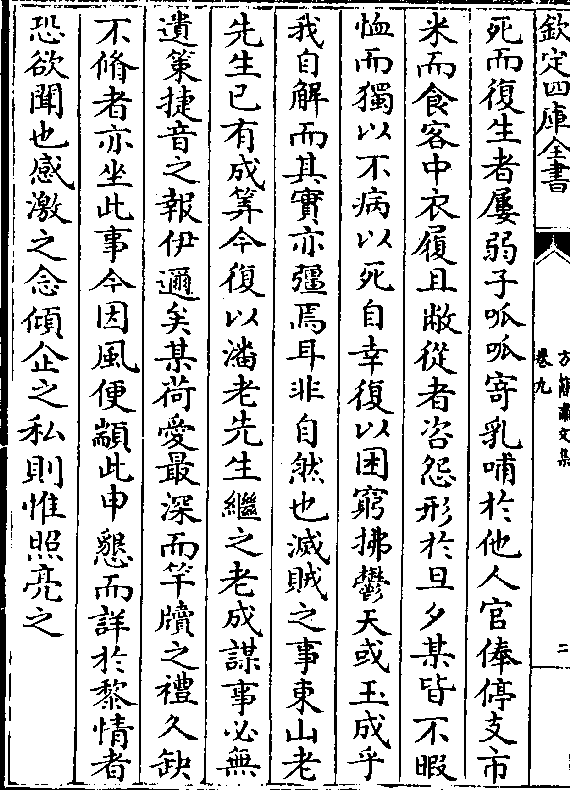 欽定四庫全書
方簡肅文集
卷九
二
死而復生者屢弱子呱呱寄乳哺於他人官俸停支市
米而食客中衣履且敝從者咨怨形於旦夕某皆不暇
恤而獨以不病以死自幸復以困窮拂鬱天或玉成乎
我自解而其實亦彊焉耳非自然也滅賊之事東山老
先生已有成筭今復以潘老先生繼之老成謀事必無
遺策捷音之報伊邇矣某荷愛最深而竿牘之禮久缺
不脩者亦坐此事今因風便顓此申懇而詳於黎情者
恐欲聞也感激之念傾企之私則惟照亮之